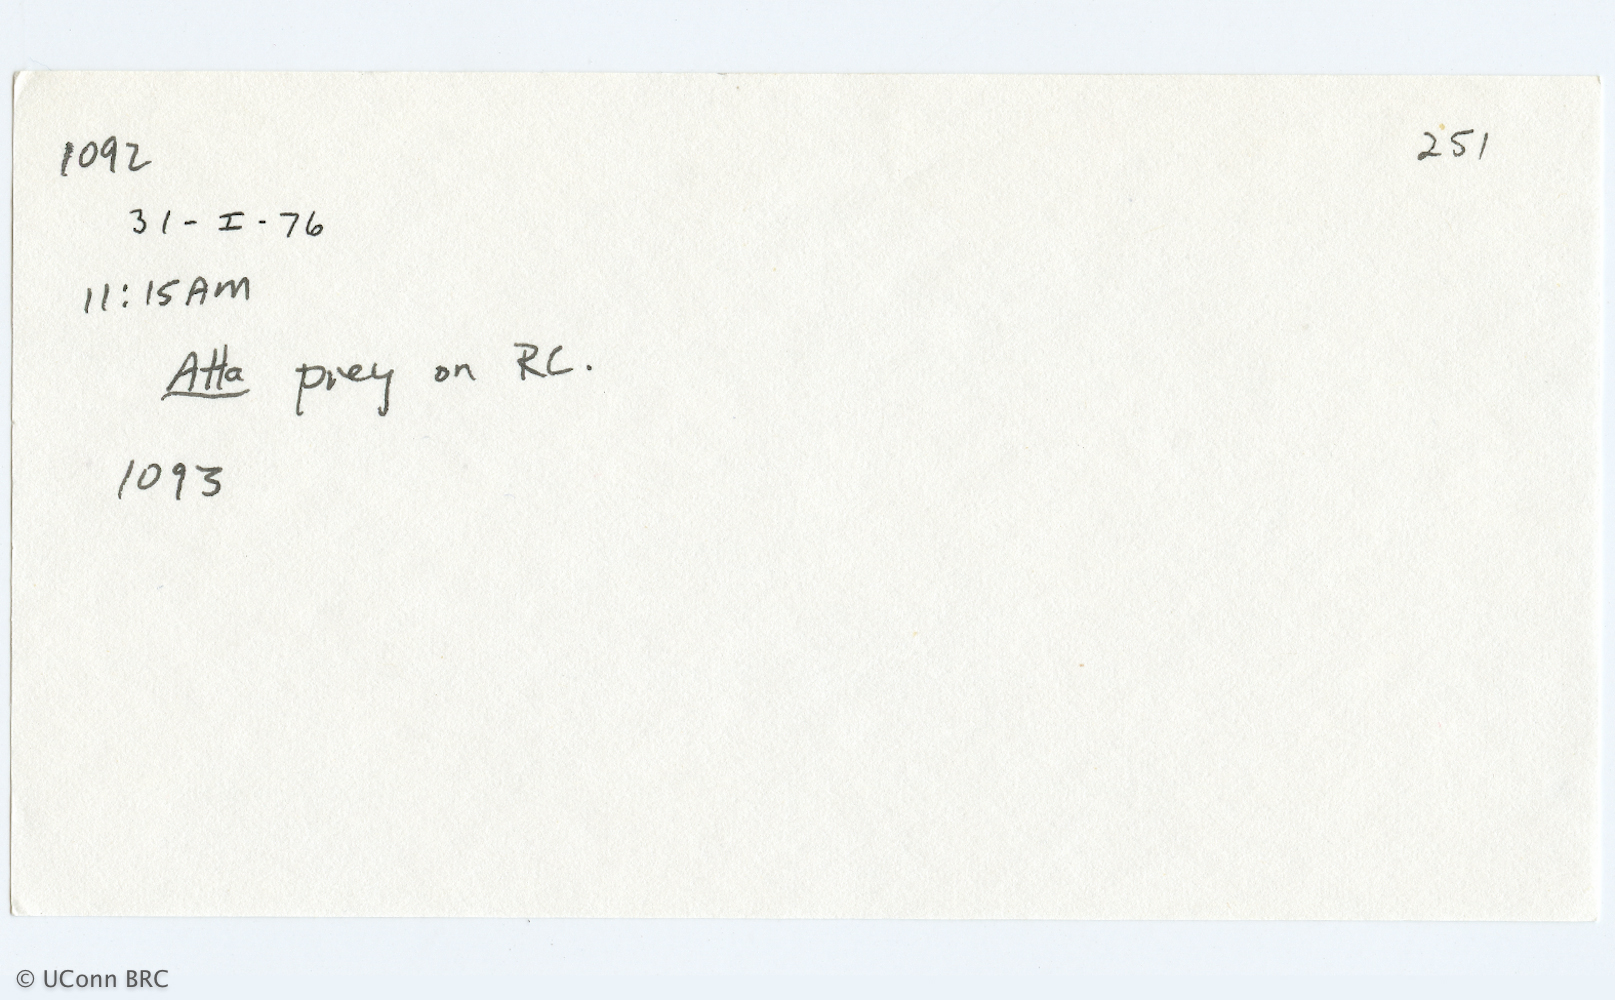 1092 251
31-I-76
11:15AM
Atta prey on RC.
1093
© UConn BRC